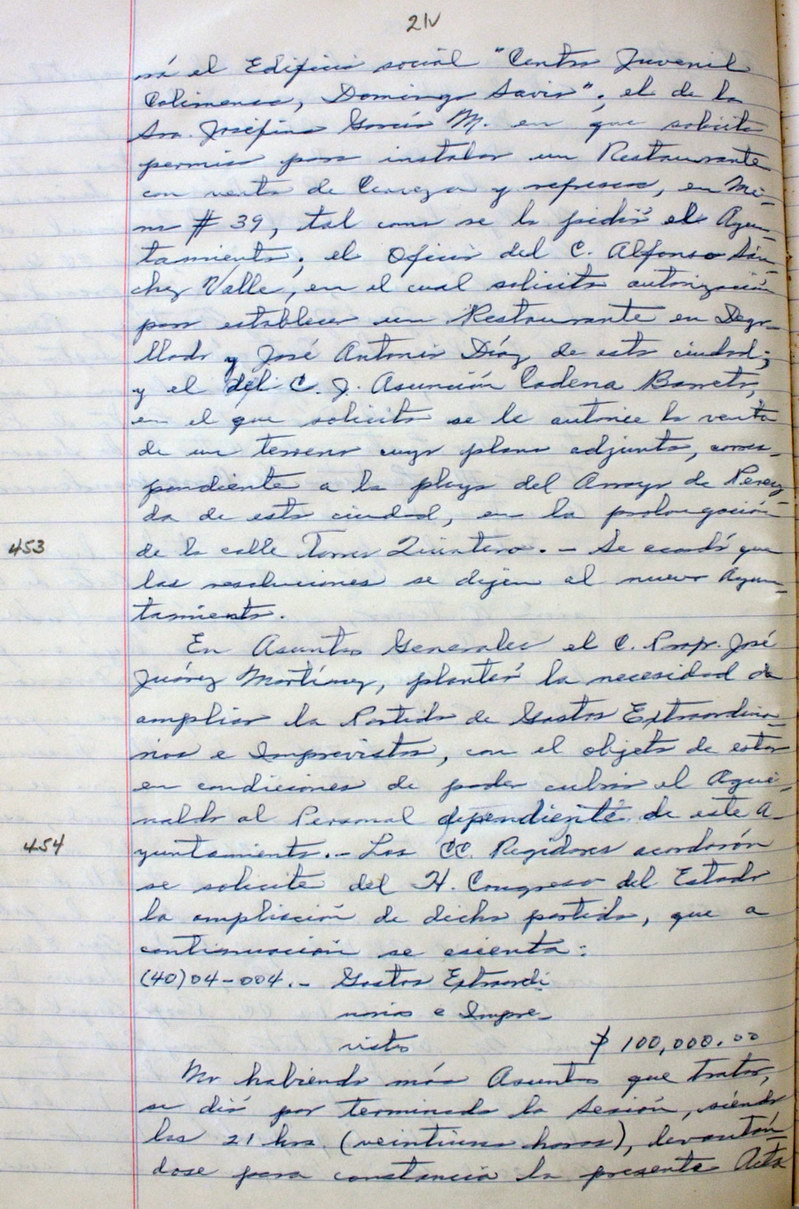 21v
rá el Edificio social "Centro Juvenil
Colimense, Domingo Savio"; el de la
Sra. Josefina García M. en que solicita
permiso para instalar un Restaurante
con venta de Cerveza y refrescos, en Mi-
na # 39, tal como se lo pidió el Ayun-
tamiento; el Oficio del C. Alfonso Sán-
chez Valle, en el cual solicita autorización
para establecer un Restaurante en Dego-
llado y José Antonio Díaz de esta ciudad;
y el del C. J. Asunción Cadena Barreto,
en el que solicita se le autorice la venta
de un terreno cuyo plano adjunta, corres-
pondiente a la playa del Arroyo de Pereyr-
da de esta ciudad, en la prolongación
453
de la calle Torres Quintero. - Se acordó que
las resoluciones se dejen al nuevo Ayun-
tamiento.
En Asuntos Generales el C. Profr. José
Juárez Martínez, planteó la necesidad de
ampliar la Partida de Gastos Extraordina-
rios e Imprevistos, con el objeto de estar
en condiciones de poder cubrir el Agui-
naldo al Personal dependiente de este A-
454
yuntamiento. - Los CC. Regidores acordarón
se solicite del H. Congreso del Estado
la ampliación de dicha partida, que a
continuación se asienta:
(40)04-004. - Gastos Extraordi
narios e Impre-
vistos $ 100,000.00
No habiendo más Asuntos que tratar,
se dió por terminada la Sesión, siendo
las 21 hrs. (veintiuna horas), levantán-
dose para constancia la presente Acta